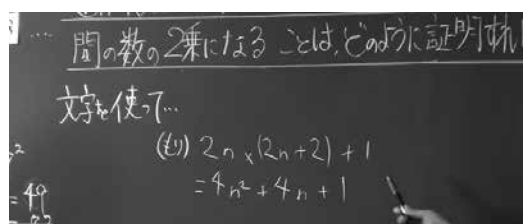 間の数の2乗になる ことは,どのように証明すれ
文字を使って…
(もり) 2n×(2n+2)+1
=4n²+4n+1
= 49